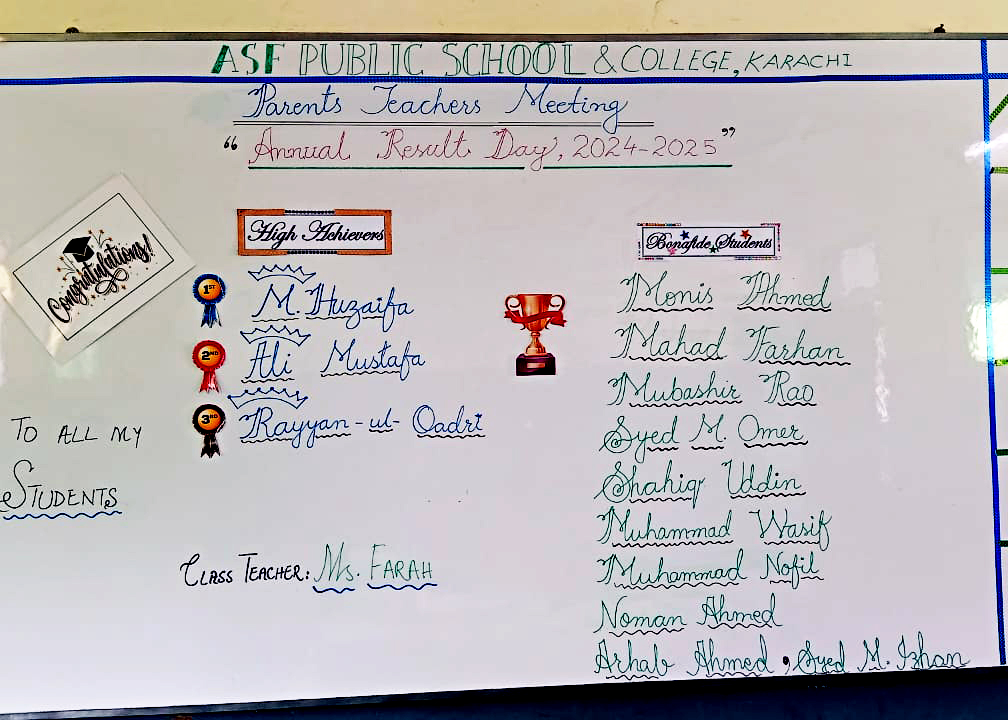 ASF PUBLIC SCHOOL & COLLEGE, KARACHI
Parents Teachers Meeting
“Annual Result Day, 2024-2025”
Congratulations!
TO ALL MY
STUDENTS
High Achievers
1ST M. Huzaifa
2ND Ali Mustafa
3RD Rayyan-ul-Qadri
CLASS TEACHER: Ms. FARAH
Bonafide Students
Monis Ahmed
Mahad Farhan
Mubashir Rao
Syed M. Omer
Shahiq Uddin
Muhammad Wasif
Muhammad Nofil
Noman Ahmed
Arhab Ahmed, Syed M. Izhan